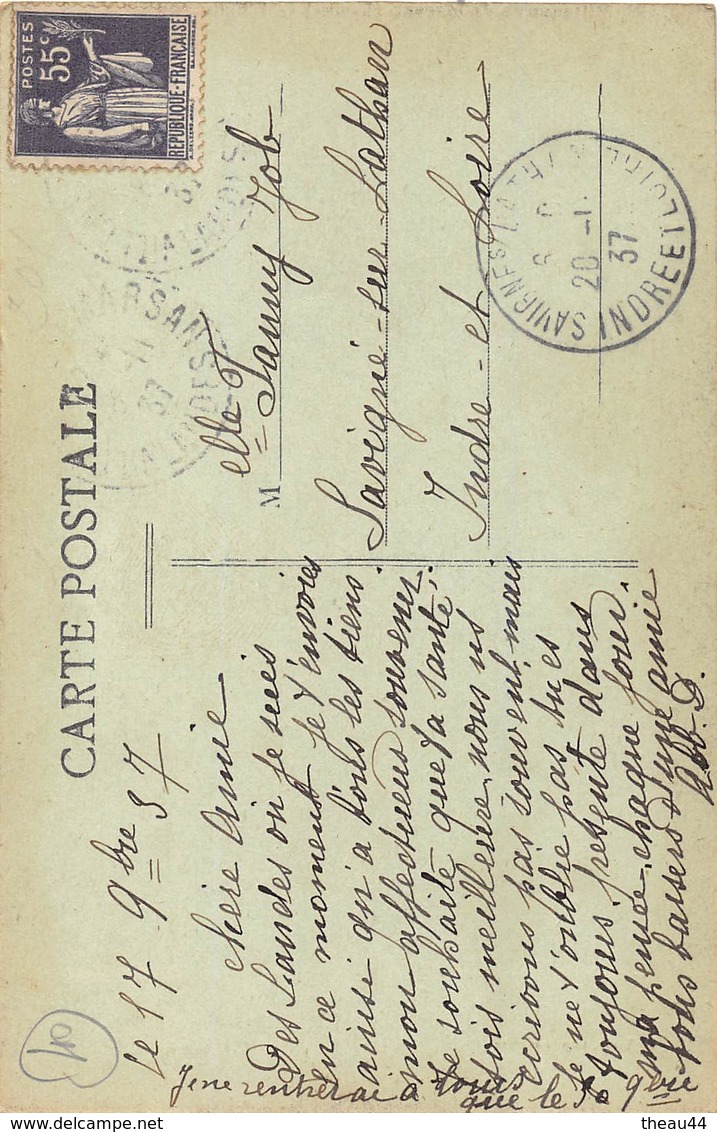 CARTE POSTALE
POSTES
55c
REPUBLIQUE-FRANÇAISE
MARSAN
11
37
LANDES
le 17 9bre 37
Chère Amie
Des Landes où je suis
en ce moment je t'envoies
ainsi qu'a tous les tiens
mon affectueux souvenir.
Je souhaite que ta santé,
sois meilleure, nous ns
ecrivons pas souvent, mais
je ne t'oublie pas tu es
toujours presente dans
ma pensée, chaque jour.
Tons baisers d'une amie
Abb. D.
Je ne rentrerai a Tours
que le
9bre
M
elle Fanny Job
Savigné-sur-Lathan
Indre-et Loire
20 -11
37
INDRE ET LOIRE
40
theau44